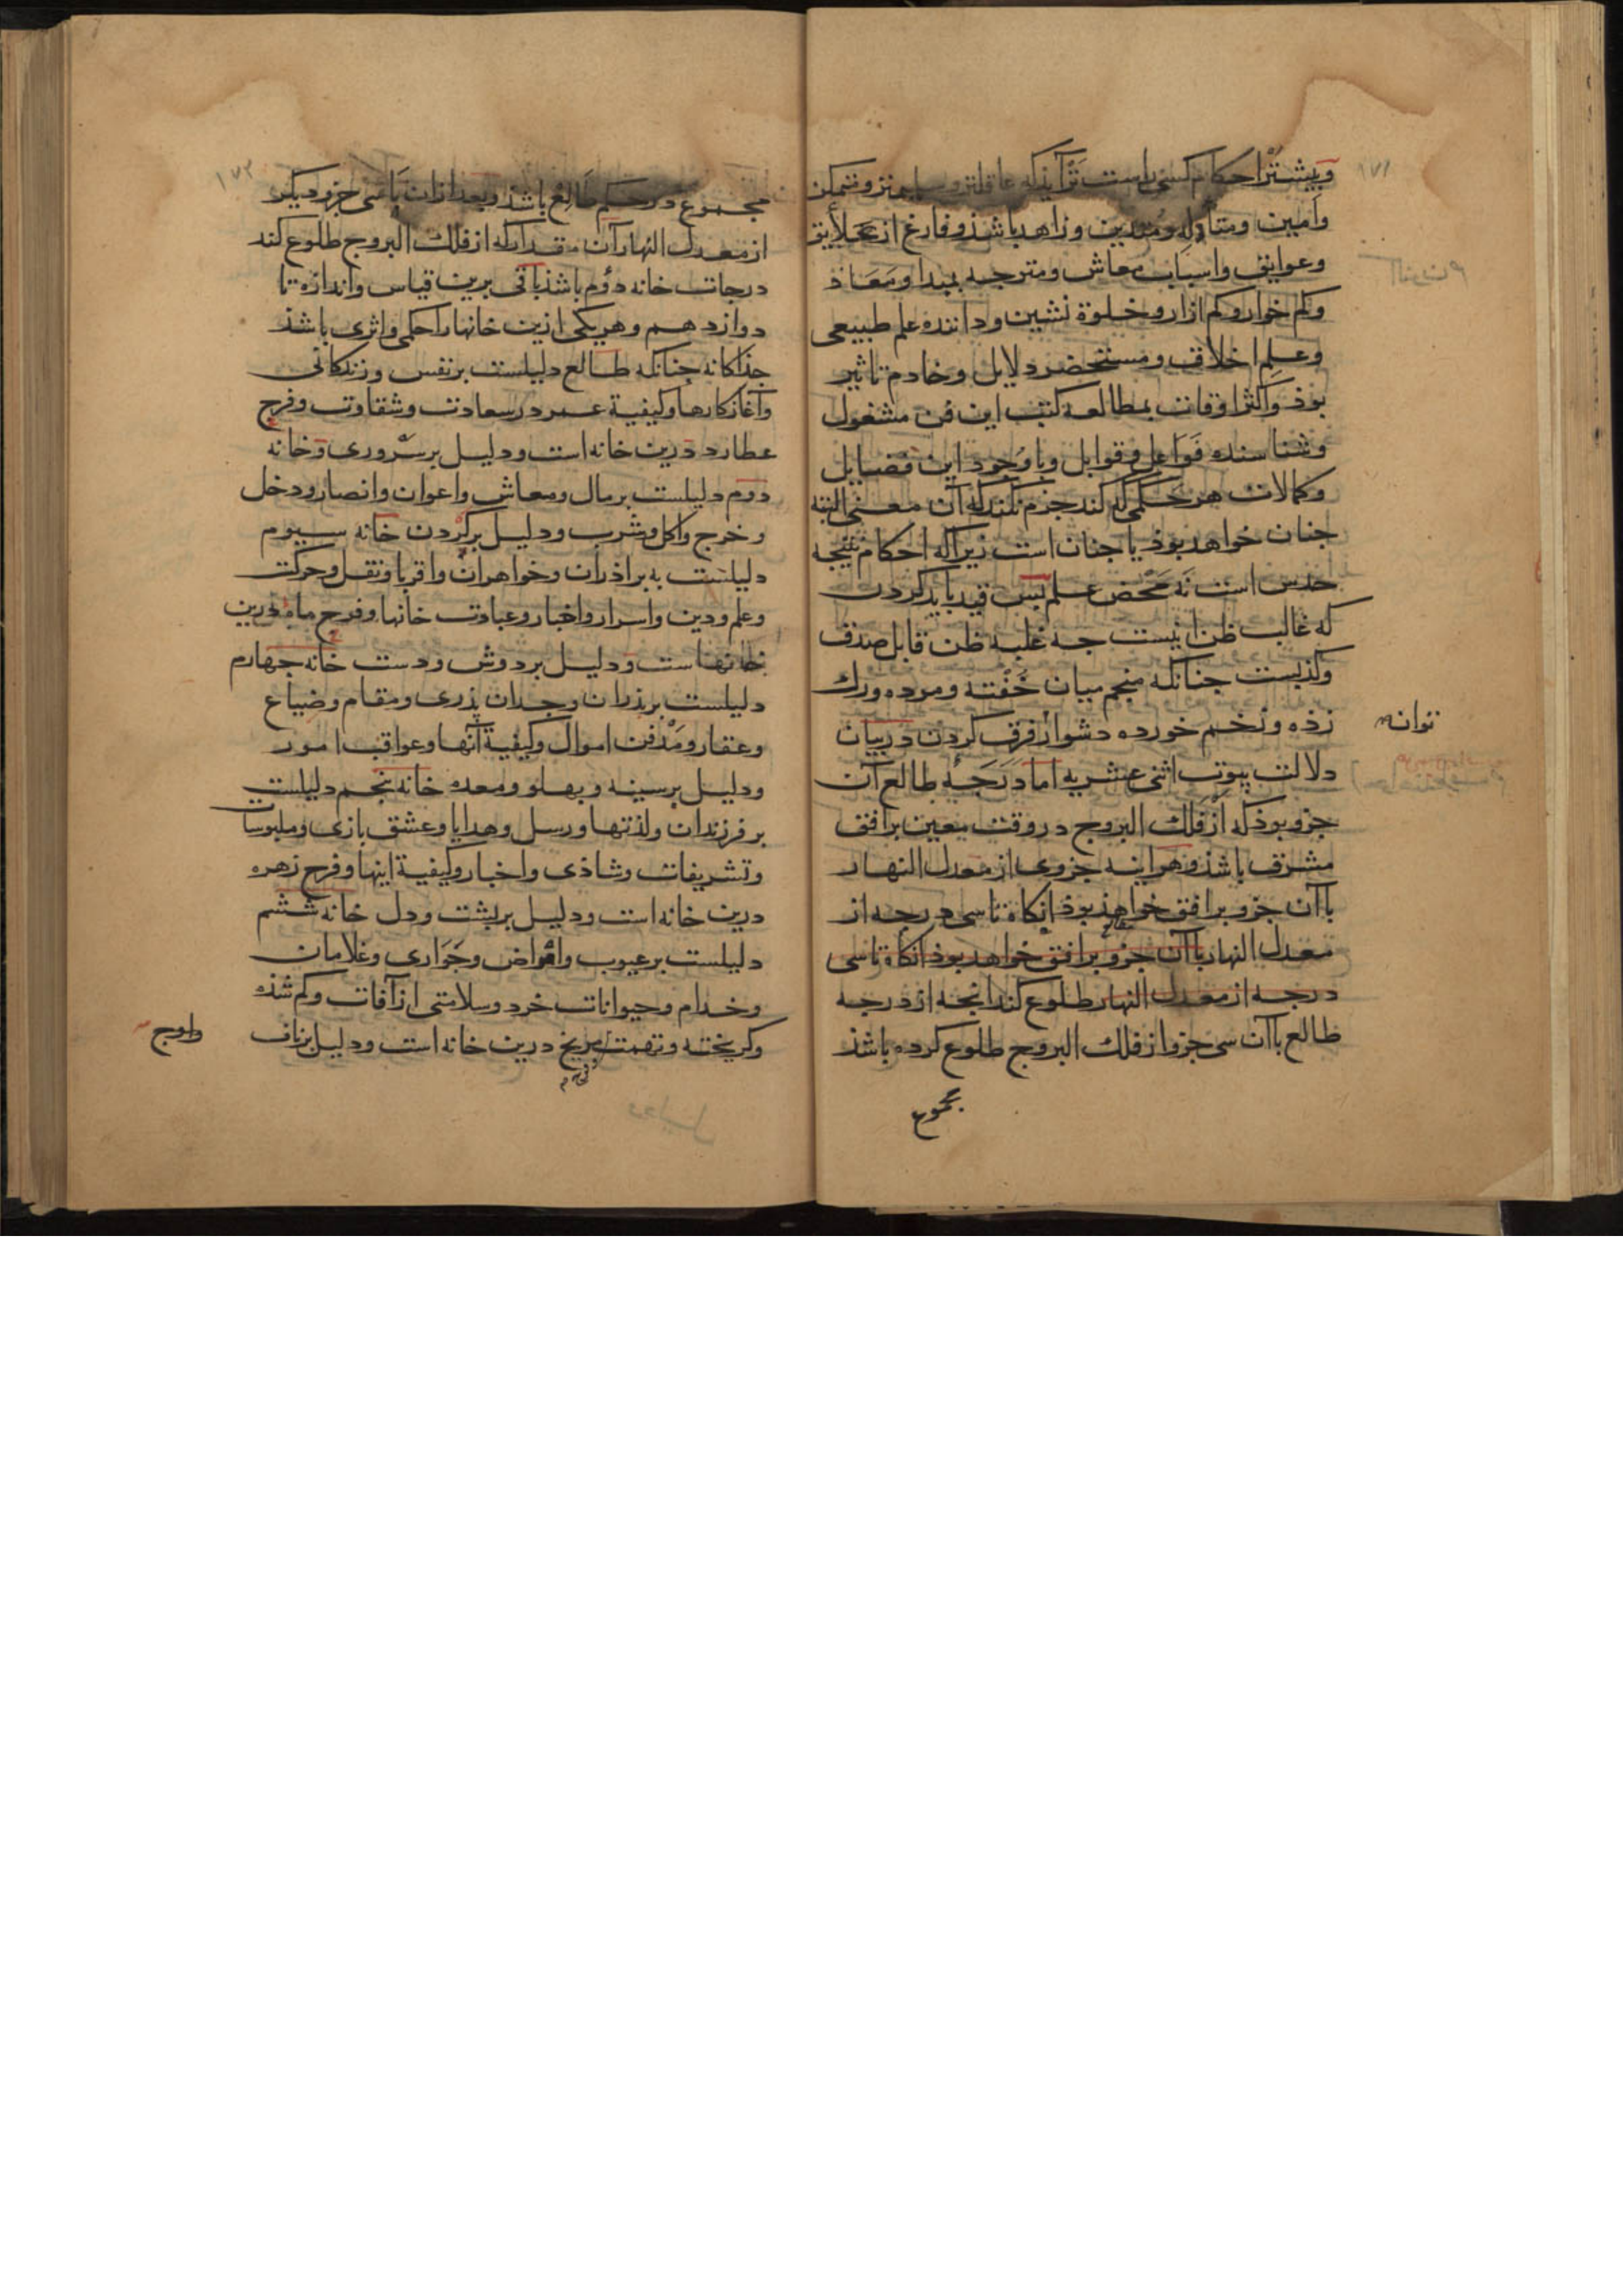 وبیشتر احکام کسی راست تر آید که عاقلتر و سلیم‌تر و متمکن
وامین و متأله و متدین و زاهد باشذ و فارغ از علایق
وعوایق واسباب معاش ومتوجه بمبدا ومعاد
وکم خوار وکم ازار وخلوة نشین وداننده علم طبیعی
وعلم اخلاق ومستحضر دلایل وخادم تاثیر
بوذ واکثر اوقات بمطالعه کتب این فن مشغول
وشناسنده فواعل وقوابل وباوجود این فضایل
وکمالات هر حکمی که کند جزم نکند که آن معنی البته
جنان خواهد بوذ یا جنان است زیراکه احکام نتیجه
حدس است نه محض علم بس قید باید کردن
که غالب ظن اینست جه غلبه ظن قابل صدق
وکذبست جنانکه منجم میان خفته ومرده ورک
زذه وزخم خورده دشوار فرق کردن دربیان
توانه
دلالت بیوت اثنی عشریه اما درجه طالع آن
جزو بوذ که از فلک البروج در وقت معین برافق
مشرق باشذ وهراینه جزوی از معدل النهار
باآن جزو برافق خواهذ بوذ انکاه تاسی درجه از
معدل النهار باآن جزو برافق خواهد بوذ انکاه تاسی
درجه از معدل النهار طلوع کند انجه از درجه
طالع باآن سی جزو از فلک البروج طلوع کرده باشذ
مجموع
۱۷۲
مجموع در حکم طالع باشذ وبعد ازان باسی جزو دیکر
از معدل النهار آن مقدار که از فلک البروج طلوع کند
درجات خانه دوم باشذ باقی برین قیاس واندازه تا
دوازدهم وهریکی ازین خانها را حکمی واثری باشذ
جذاکانه جنانکه طالع دلیلست برنفس وزندکانی
وآغاز کارها وکیفیة عمر در سعادت وشقاوت وفرح
عطارد درین خانه است ودلیل بر سروری وخانه
دوم دلیلست برمال ومعاش واعوان وانصار ودخل
وخرج واکل وشرب ودلیل برکردن خانه سیوم
دلیلست به براذران وخواهران واقربا ونقل وحرکت
وعلم ودین واسرار واخبار وعبادت خانها وفرح ماه درین
خانهاست ودلیل بردوش ودست خانه جهارم
دلیلست برپذران وجدان پذری ومقام وضیاع
وعقار ومدفن اموال وکیفیة آنها وعواقب امور
ودلیل برسینه وبهلو ومعده خانه پنجم دلیلست
بر فرزندان ولذتها ورسل وهدایا وعشق بازی وملبوسات
وتشریفات وشاذی واخبار وکیفیة اینها وفرح زهره
درین خانه است ودلیل بربشت ودل خانه ششم
دلیلست برعیوب وامراض وجواری وغلامان
وخدام وحیوانات خرد وسلامتی از آفات وکم شذه
وکریخته وتهمت مریخ درین خانه است ودلیل برناف